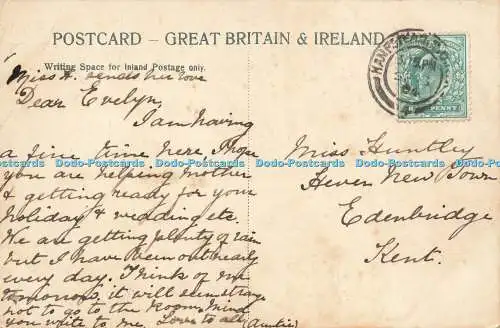 POSTCARD – GREAT BRITAIN & IRELAND
Writing Space for Inland Postage only.
Miss A. sends her love
Dear Evelyn,
I am having
a fine time here. I hope
you are helping mother
& getting ready for your
holiday & wedding etc.
We are getting plenty of rain
but I have been out nearly
every day. Think of me
tomorrow, it will seem strange
not to go to the Room. Mind
you write to me. Love to all
(Auntie)
Miss Huntley
Hever New Town
Edenbridge
Kent.
PENNY
Dodo-Postcards Dodo-Postcards Dodo-Postcards Dodo-Postcards Dodo-Postcards
Dodo-Postcards Dodo-Postcards Dodo-Postcards Dodo-Postcards Dodo-Postcards